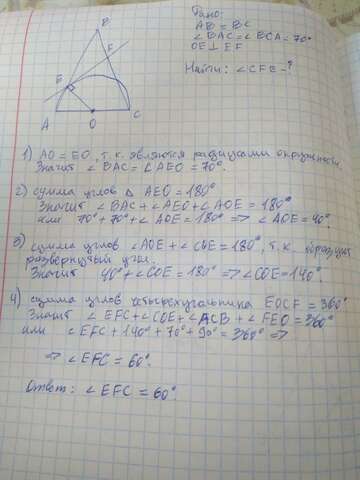 Дано:
AB = BC
∠BAC = ∠BCA = 70°
OE ⊥ EF
Найти: ∠CFE - ?
B
F
E
A
O
C
1) AO = EO, т.к. являются радиусами окружности
Значит ∠BAC = ∠AEO = 70°.
2) сумма углов △ AEO = 180°
Значит ∠BAC + ∠AEO + ∠AOE = 180°
или 70° + 70° + ∠AOE = 180° => ∠AOE = 40°.
3) сумма углов ∠AOE + ∠COE = 180°, т.к. образуют
развернутый угол.
Значит 40° + ∠COE = 180° => ∠COE = 140°.
4) сумма углов четырехугольника EOCF = 360°
Значит ∠EFC + ∠COE + ∠ACB + ∠FEO = 360°
или ∠EFC + 140° + 70° + 90° = 360° =>
=> ∠EFC = 60°.
Ответ: ∠EFC = 60°.